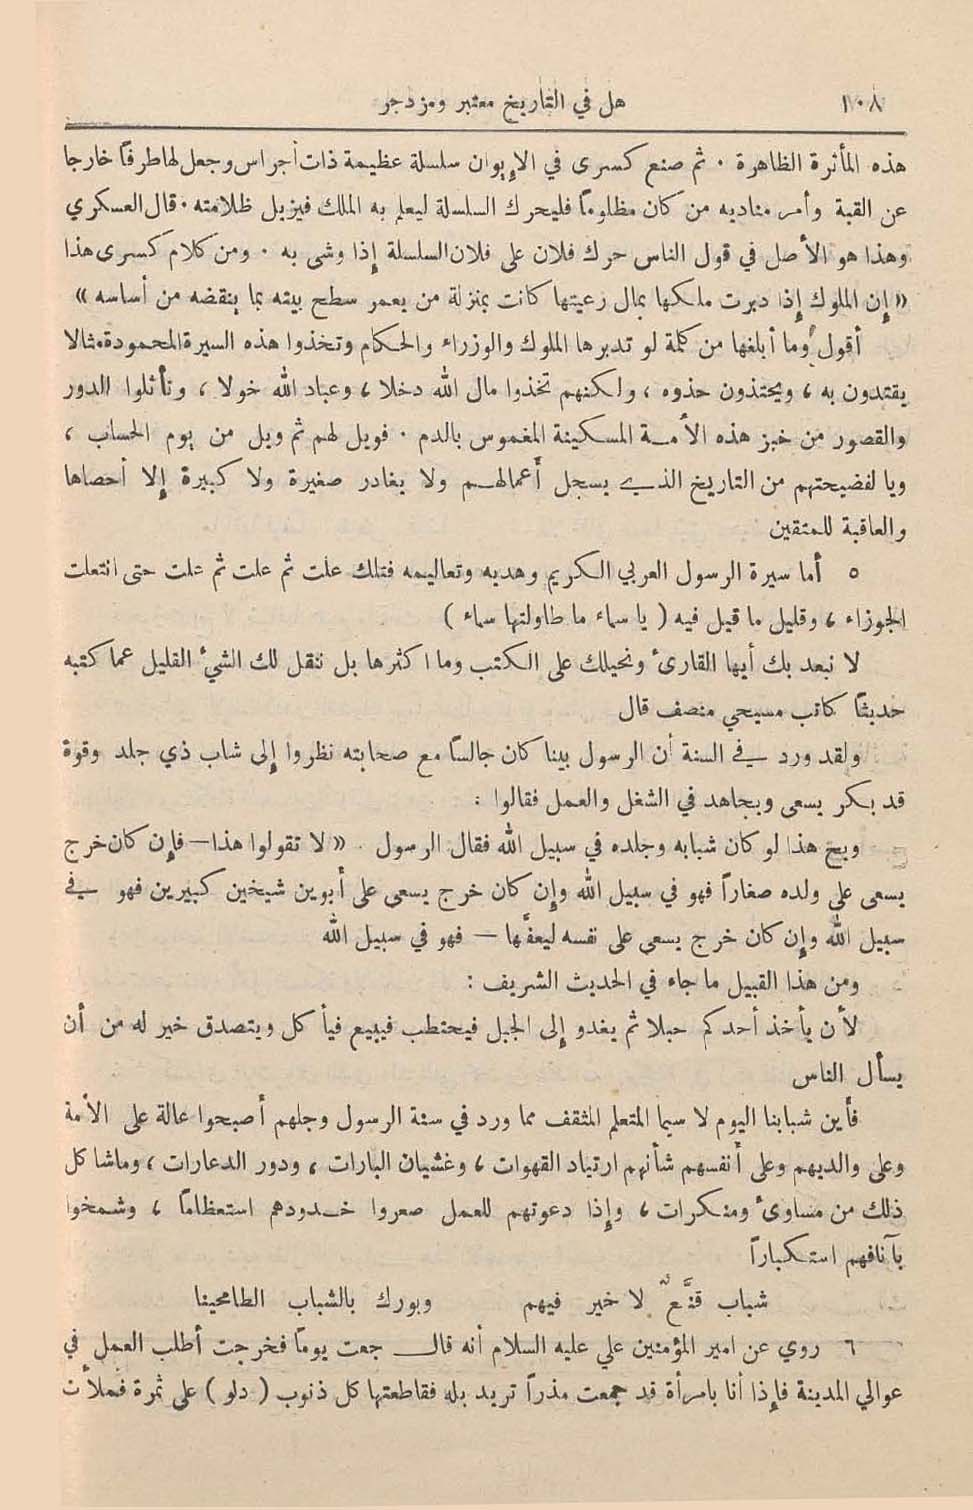 ١٠٨ هل في التاريخ معتبر ومزدجر
هذه المأثرة الظاهرة . ثم صنع كسرى في الإيوان سلسلة عظيمة ذات أجراس وجعل لها طرفاً خارجا
عن القبة وأمر مناديه من كان مظلوماً فليحرك السلسلة ليعلم به الملك فيزيل ظلامته . قال العسكري
وهذا هو الأصل في قول الناس حرك فلان على فلان السلسلة إذا وشى به . ومن كلام كسرى هذا
« إن الملوك إذا دبرت ملكها بمال رعيتها كانت بمنزلة من يعمر سطح بيته بما ينقضه من أساسه »
أقول وما أبلغها من كلمة لو تدبرها الملوك والوزراء والحكام وتخذوا هذه السيرة المحمودة مثالا
يقتدون به ، ويحتذون حذوه ، ولكنهم تخذوا مال الله دخلا ، وعباد الله خولا ، وتأثلوا الدور
والقصور من خبز هذه الأمة المسكينة المغموس بالدم . فويل لهم ثم ويل من يوم الحساب ،
ويا لفضيحتهم من التاريخ الذي يسجل أعمالهم ولا يغادر صغيرة ولا كبيرة إلا أحصاها
والعاقبة للمتقين
٥ أما سيرة الرسول العربي الكريم وهديه وتعاليمه فتلك علت ثم علت ثم علت حتى انتعلت
الجوزاء ، وقليل ما قيل فيه ( يا سماء ما طاولتها سماء )
لا نبعد بك أيها القارئ ونحيلك على الكتب وما اكثرها بل ننقل لك الشيء القليل عما كتبه
حديثاً كاتب مسيحي منصف قال
ولقد ورد في السنة أن الرسول بينا كان جالساً مع صحابته نظروا إلى شاب ذي جلد وقوة
قد بكر يسعى ويجاهد في الشغل والعمل فقالوا :
ويح هذا لو كان شبابه وجلده في سبيل الله فقال الرسول . « لا تقولوا هذا — فإن كان خرج
يسعى على ولده صغاراً فهو في سبيل الله وإن كان خرج يسعى على أبوين شيخين كبيرين فهو في
سبيل الله وإن كان خرج يسعى على نفسه ليعفَّها — فهو في سبيل الله
ومن هذا القبيل ما جاء في الحديث الشريف :
لأن يأخذ أحدكم حبلا ثم يغدو إلى الجبل فيحتطب فيبيع فيأكل ويتصدق خير له من أن
يسأل الناس
فأين شبابنا اليوم لا سيما المتعلم المثقف مما ورد في سنة الرسول وجلهم أصبحوا عالة على الأمة
وعلى والديهم وعلى أنفسهم شأنهم ارتياد القهوات ، وغشيان البارات ، ودور الدعارات ، وماشاكل
ذلك من مساوئ ومنكرات ، وإذا دعوتهم للعمل صعروا خدودهم استعظاماً ، وشمخوا
بآنافهم استكباراً
شباب قنَّع لا خير فيهم وبورك بالشباب الطامحينا
٦ روي عن امير المؤمنين علي عليه السلام أنه قال جعت يوماً فخرجت أطلب العمل في
عوالي المدينة فإذا أنا بامرأة قد جمعت مذراً تريد بله فقاطعتها كل ذنوب ( دلو ) على ثمرة فملأت